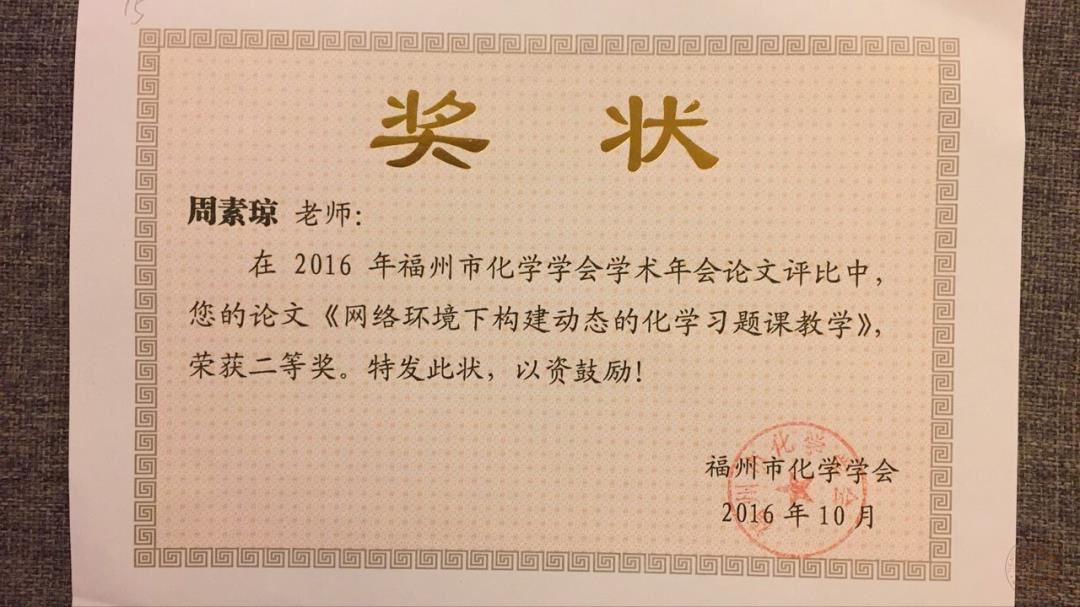 15
奖 状
周素琼 老师：
在 2016 年福州市化学学会学术年会论文评比中，
您的论文《网络环境下构建动态的化学习题课教学》，
荣获二等奖。特发此状，以资鼓励！
福州市化学学会
2016 年 10 月
福州市化学学会